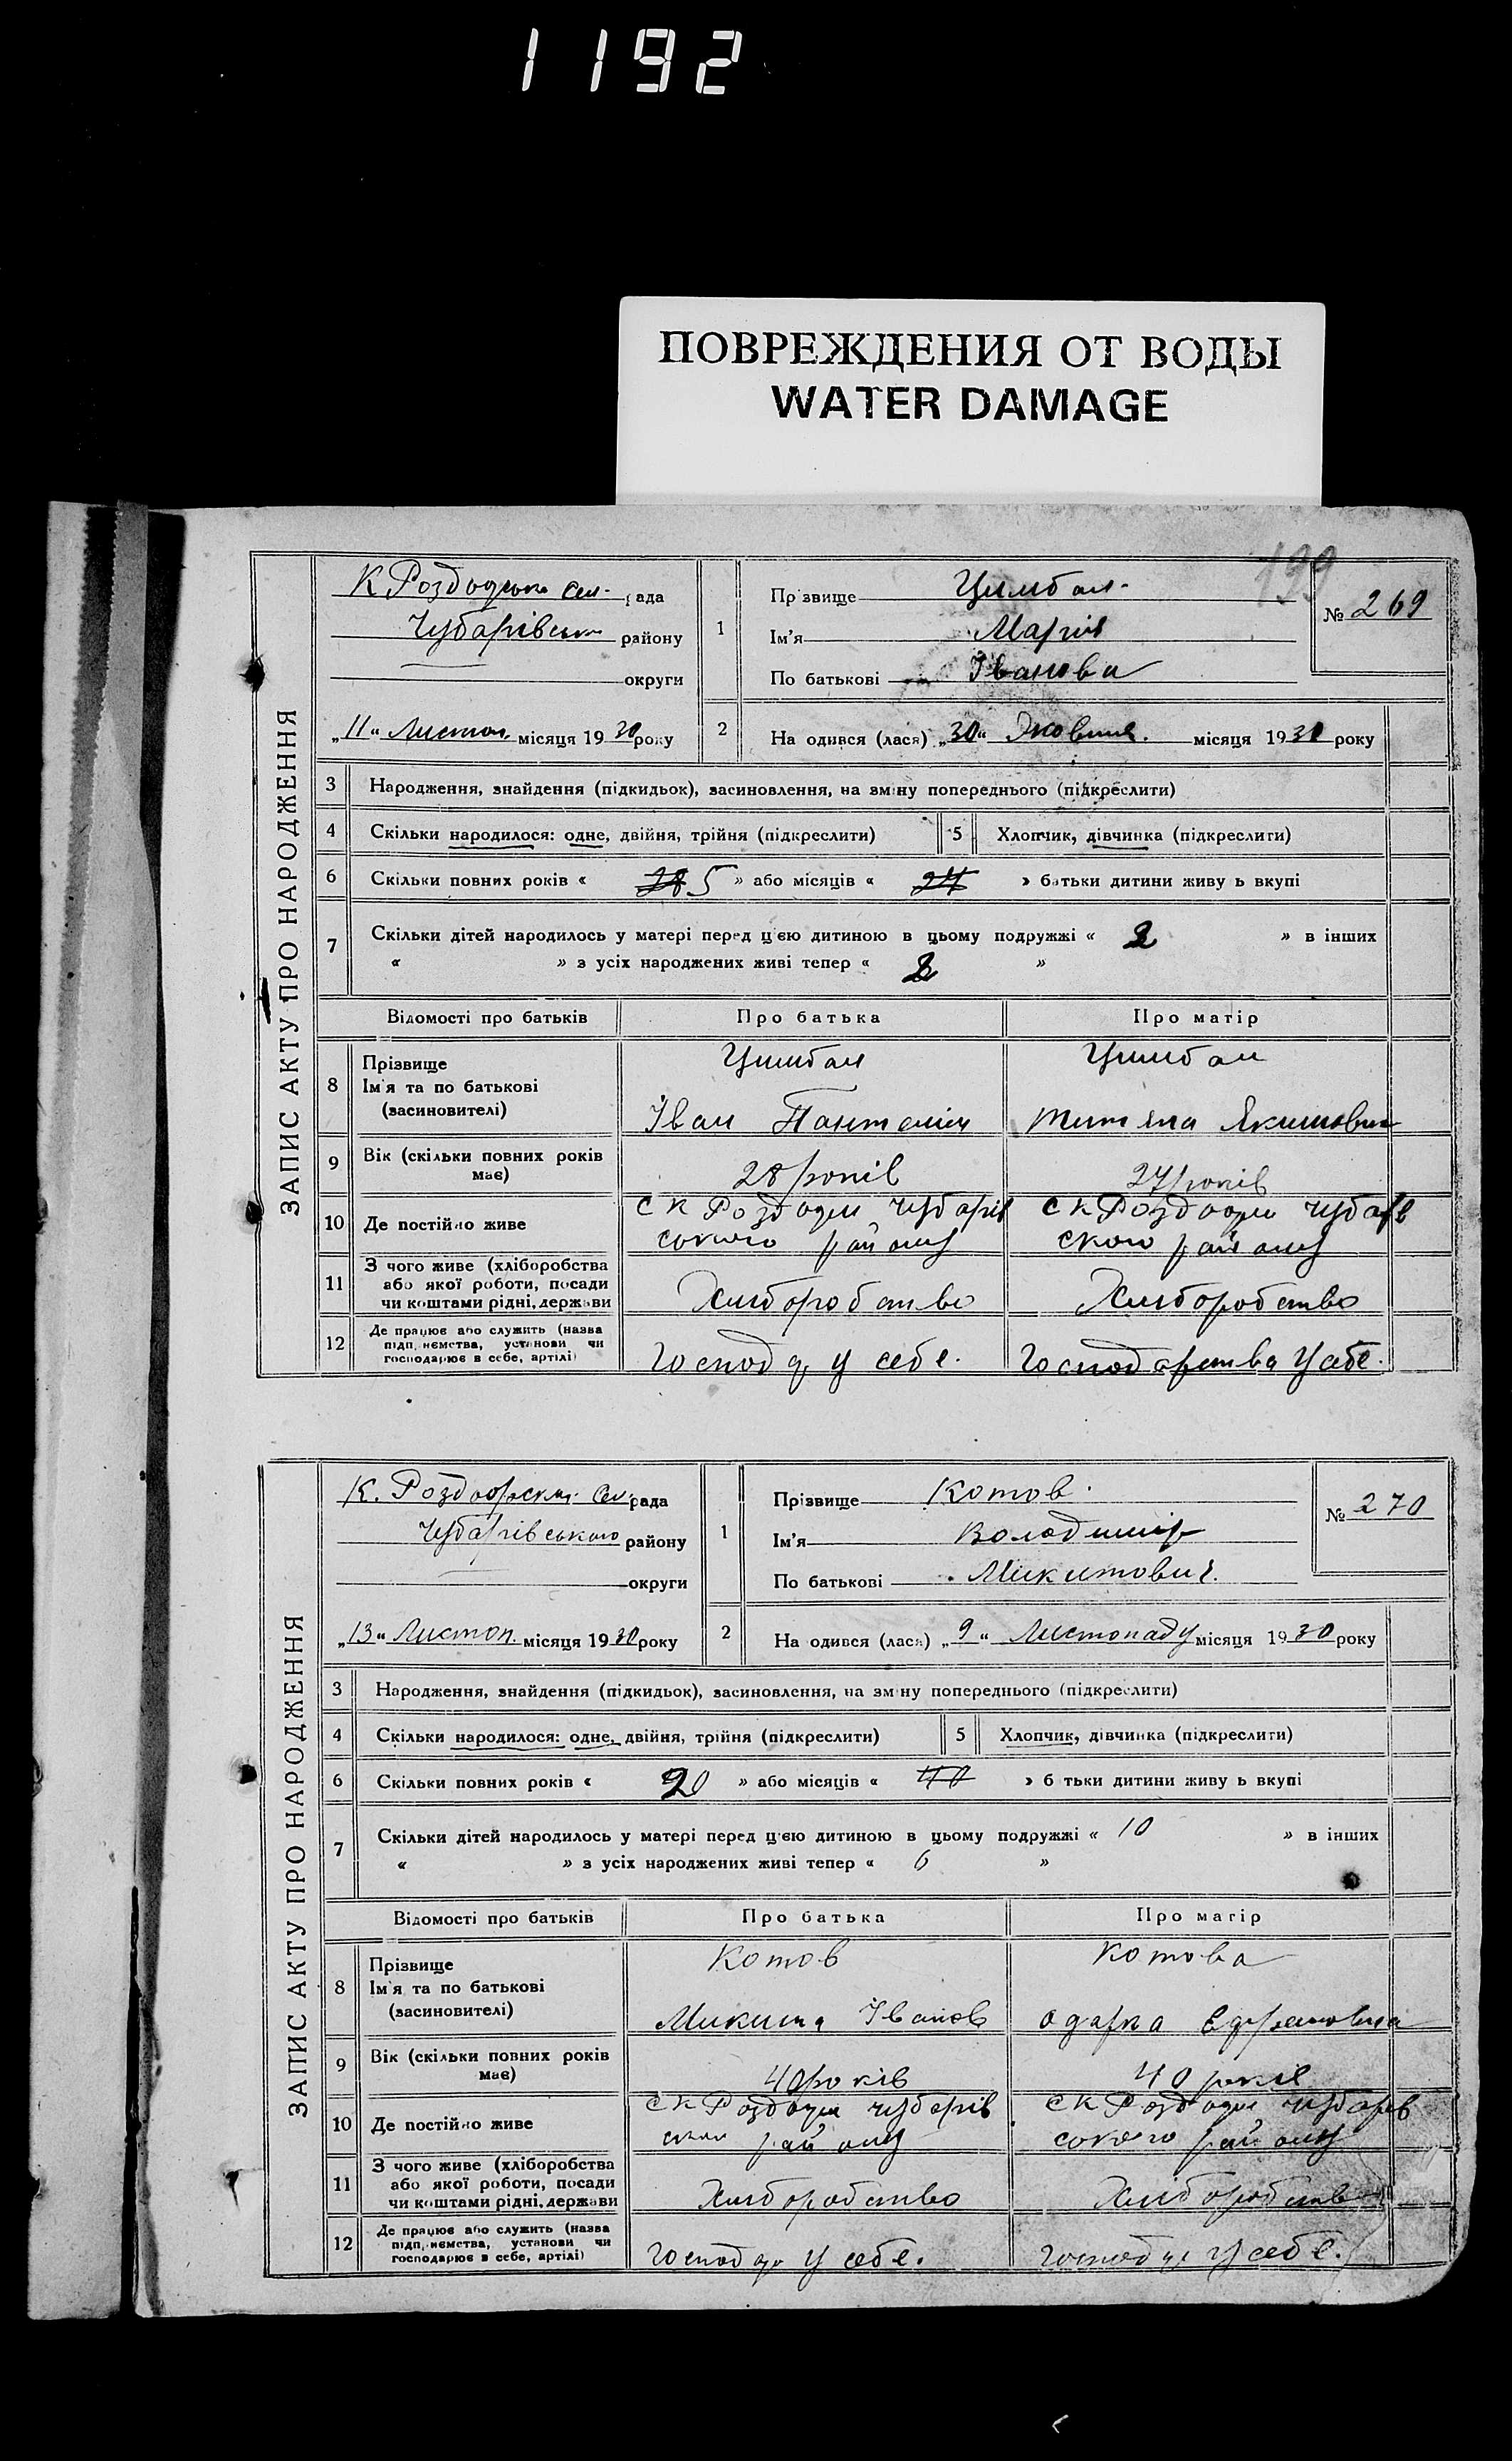 1192
ПОВРЕЖДЕНИЯ ОТ ВОДЫ
WATER DAMAGE
199
ЗАПИС АКТУ ПРО НАРОДЖЕННЯ
К Роздорська сел. рада
Чубарівськ району
округи
„11“ Листоп. місяця 1930 року
1
Прізвище Цимбал
Ім'я Марія
По батькові Іванова
№ 269
2
На одився (лася) „30“ Жовтня місяця 1930 року
3 Народження, знайдення (підкидьок), засиновлення, на зміну попереднього (підкреслити)
4 Скільки народилося: одне, двійня, трійня (підкреслити) 5 Хлопчик, дівчинка (підкреслити)
6 Скільки повних років « 28 5 » або місяців « 24 » батьки дитини живу ь вкупі
7 Скільки дітей народилось у матері перед цією дитиною в цьому подружжі « 2 » в інших
« » з усіх народжених живі тепер « 2 »
Відомості про батьків Про батька Про матір
8 Прізвище
Ім'я та по батькові
(засиновителі)
Цимбал
Іван
Цимбал
Якимовна
9 Вік (скільки повних років
має)
28 років
27 років
10 Де постійно живе
С К Роздори Чубарів
ського району
С К Роздори Чубарів
ского району
11 З чого живе (хліборобства
або якої роботи, посади
чи коштами рідні, держави
Хліборобство
Хліборобство
12 Де працює або служить (назва
підп, иємства, установи чи
господарює в себе, артілі)
Господ у себе.
Господарства у себе.
ЗАПИС АКТУ ПРО НАРОДЖЕННЯ
К. Роздорска Сел. рада
Чубарівського району
округи
„13“ Листоп. місяця 1930 року
1
Прізвище Котов
Ім'я Володимір
По батькові Микитович.
№ 270
2
На одився (лася) „9“ Листопаду місяця 1930 року
3 Народження, знайдення (підкидьок), засиновлення, на зміну попереднього (підкреслити)
4 Скільки народилося: одне, двійня, трійня (підкреслити) 5 Хлопчик, дівчинка (підкреслити)
6 Скільки повних років « 20 » або місяців « 40 » б тьки дитини живу ь вкупі
7 Скільки дітей народилось у матері перед цією дитиною в цьому подружжі « 10 » в інших
« » з усіх народжених живі тепер « 6 »
Відомості про батьків Про батька Про матір
8 Прізвище
Ім'я та по батькові
(засиновителі)
Котов
Микита Іванов
Котова
Одарка Ефремовна
9 Вік (скільки повних років
має)
40 років
40 років
10 Де постійно живе
С К Роздори Чубарів
ськ району
С К Роздори Чубарів
ського району
11 З чого живе (хліборобства
або якої роботи, посади
чи коштами рідні, держави
Хліборобство
Хліборобство
12 Де працює або служить (назва
підп, иємства, установи чи
господарює в себе, артілі)
Господ у себе.
Господ у себе.